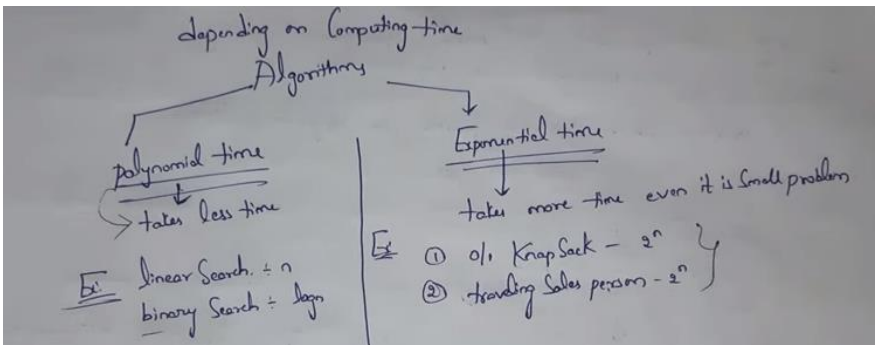 depending on Computing time
Algorithms
polynomial time
takes less time
Ex: linear Search ÷ n
binary Search ÷ logn
Exponential time
takes more time even it is Small problem
Ex ① 0/1 KnapSack - 2ⁿ
② traveling Sales person - 2ⁿ